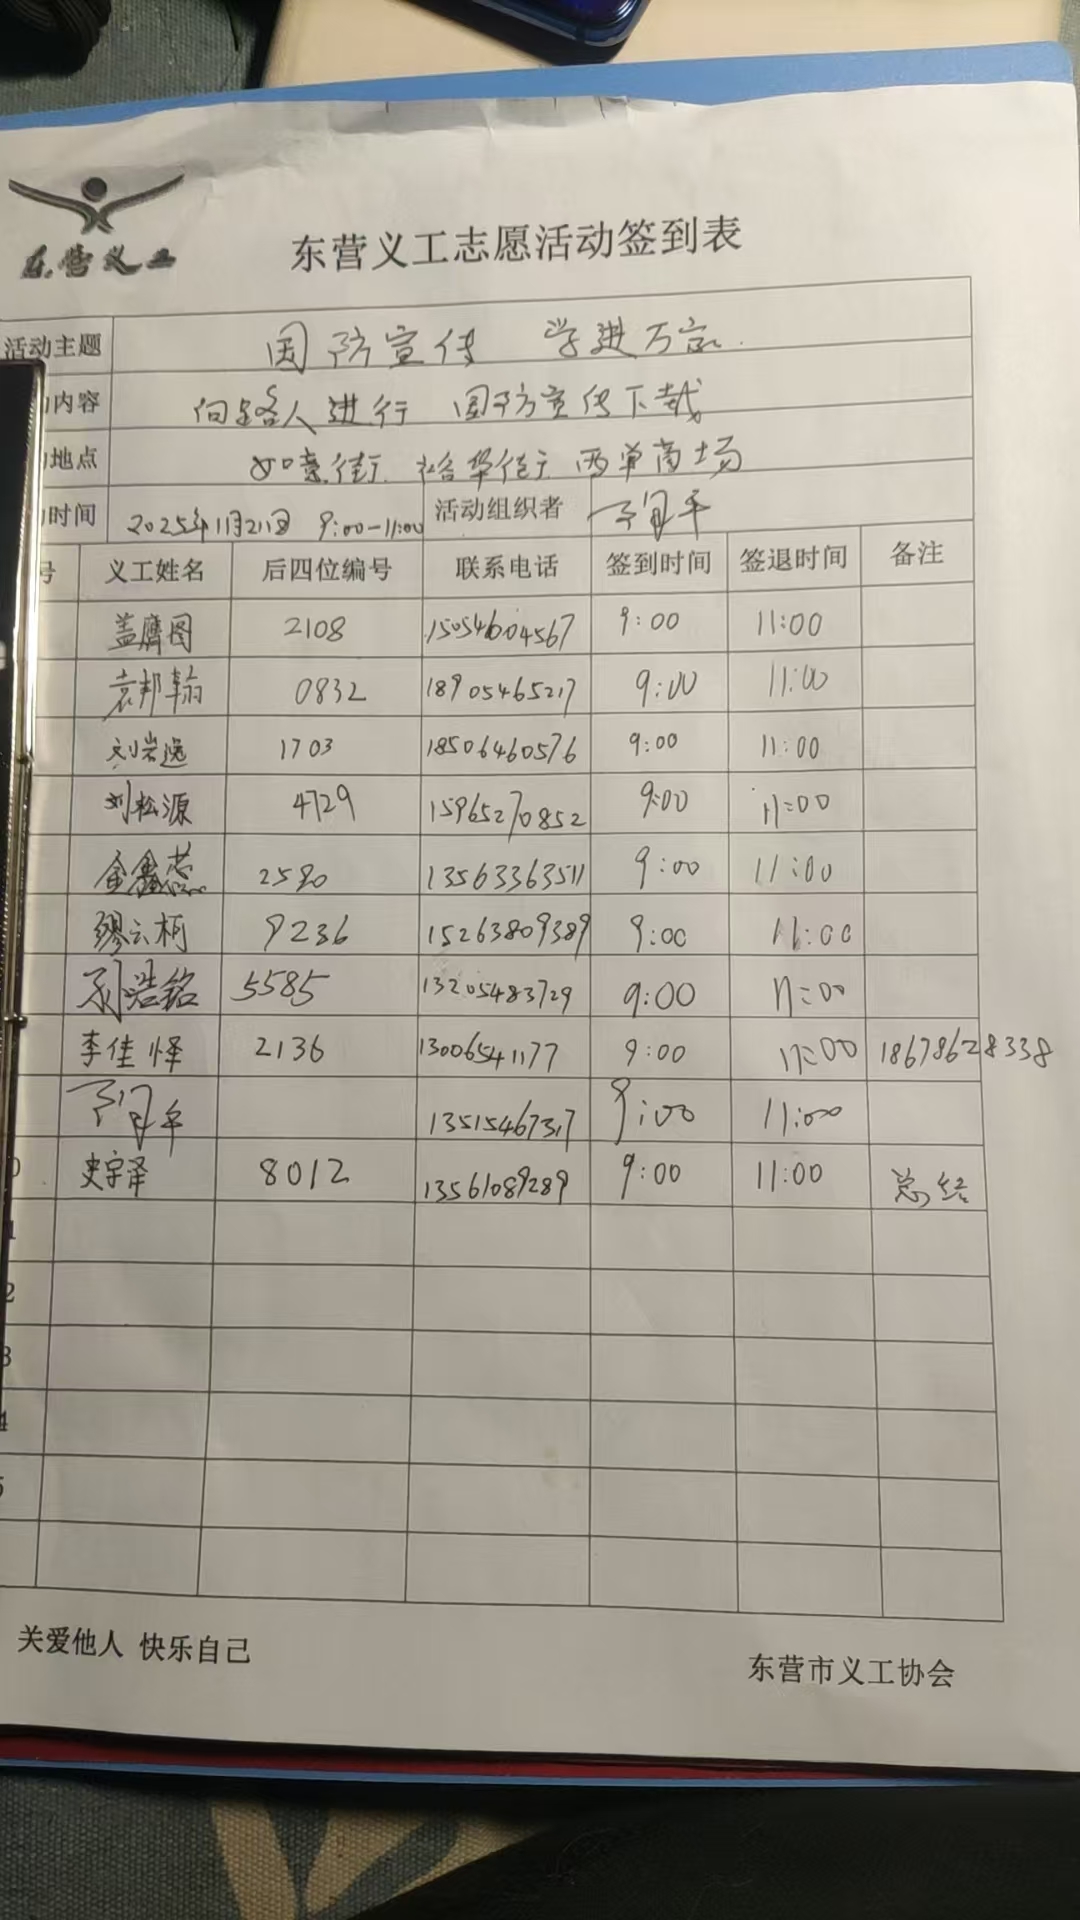 东营义工
东营义工志愿活动签到表
活动主题 国防宣传 学进万家
内容 向路人进行 国防宣传下载
地点 如意街 裕华街 西单商场
时间 2025年11月21日 9:00-11:00 活动组织者
号 义工姓名 后四位编号 联系电话 签到时间 签退时间 备注
盖膺图 2108 15054604567 9:00 11:00
袁邦翰 0832 18905465217 9:00 11:00
刘岩逸 1703 18506460576 9:00 11:00
刘松源 4729 15965270852 9:00 11:00
金鑫蕊 2580 13563363511 9:00 11:00
缪云柯 9236 15263809389 9:00 11:00
孙浩铭 5585 13205483729 9:00 11:00
李佳怿 2136 13006541177 9:00 11:00 18678628338
13515467317 9:00 11:00
0 史宇泽 8012 13561089289 9:00 11:00 总结
1
2
3
4
5
关爱他人 快乐自己
东营市义工协会